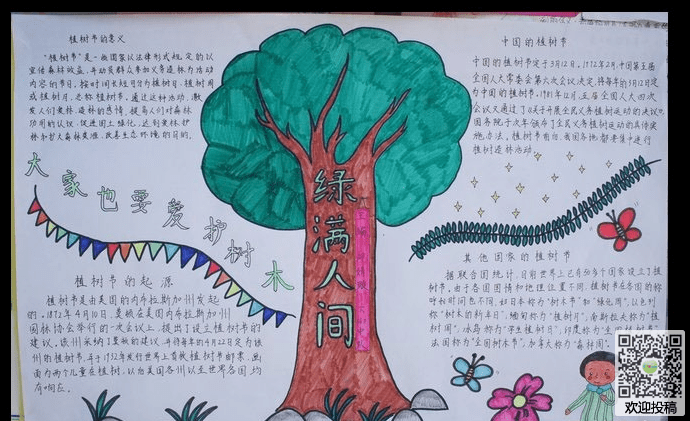 植树节的意义
"植树节"是一些国家以法律形式规定的以
宣传森林效益,并动员群众参加义务造林为活动
内容的节日。按时间长短可分为植树日、植树周
或植树月,总称植树节。通过这种活动,激
发人们爱林、造林的感情,提高人们对森林
功用的认识,促进国土绿化,达到爱林护
林和扩大森林资源、改善生态环境的目的。
大家也要爱护树木
植树节的起源
植树节是由美国的内布拉斯加州发起
的。1872年4月10日,莫顿在美国内布拉斯加州
园林协会举行的一次会议上,提出了设立植树节的
建议。该州采纳了莫顿的建议,并将每年的4月22日定为该
州的植树节,并于1932年发行世界上首枚植树节邮票,画
面为两个儿童在植树。
绿满人间
中国的植树节
中国的植树节定于3月12日。1979年2月,中国第五届
全国人大常委会第六次会议决定,将每年的3月12日定
为中国的植树节。1981年12月,五届全国人大四次
会议又通过了《关于开展全民义务植树运动的决议》。
国务院于次年颁布了全民义务植树运动的具体实
施办法。植树节前后,我国各地都要集中进行
植树造林活动。
其他国家的植树节
据联合国统计,目前世界上已有50多个国家设立了植
树节。由于各国国情和地理位置不同,植树节在各国的称
呼和时间也不同,如日本称为"树木节"和"绿化周",以色列
称"树木的新年日",缅甸称为"植树月",南斯拉夫称为"植
树周",冰岛称为"学生植树日",印度称为"全国植树节",
法国称为"全国树木节",加拿大称为"森林周"。
欢迎投稿